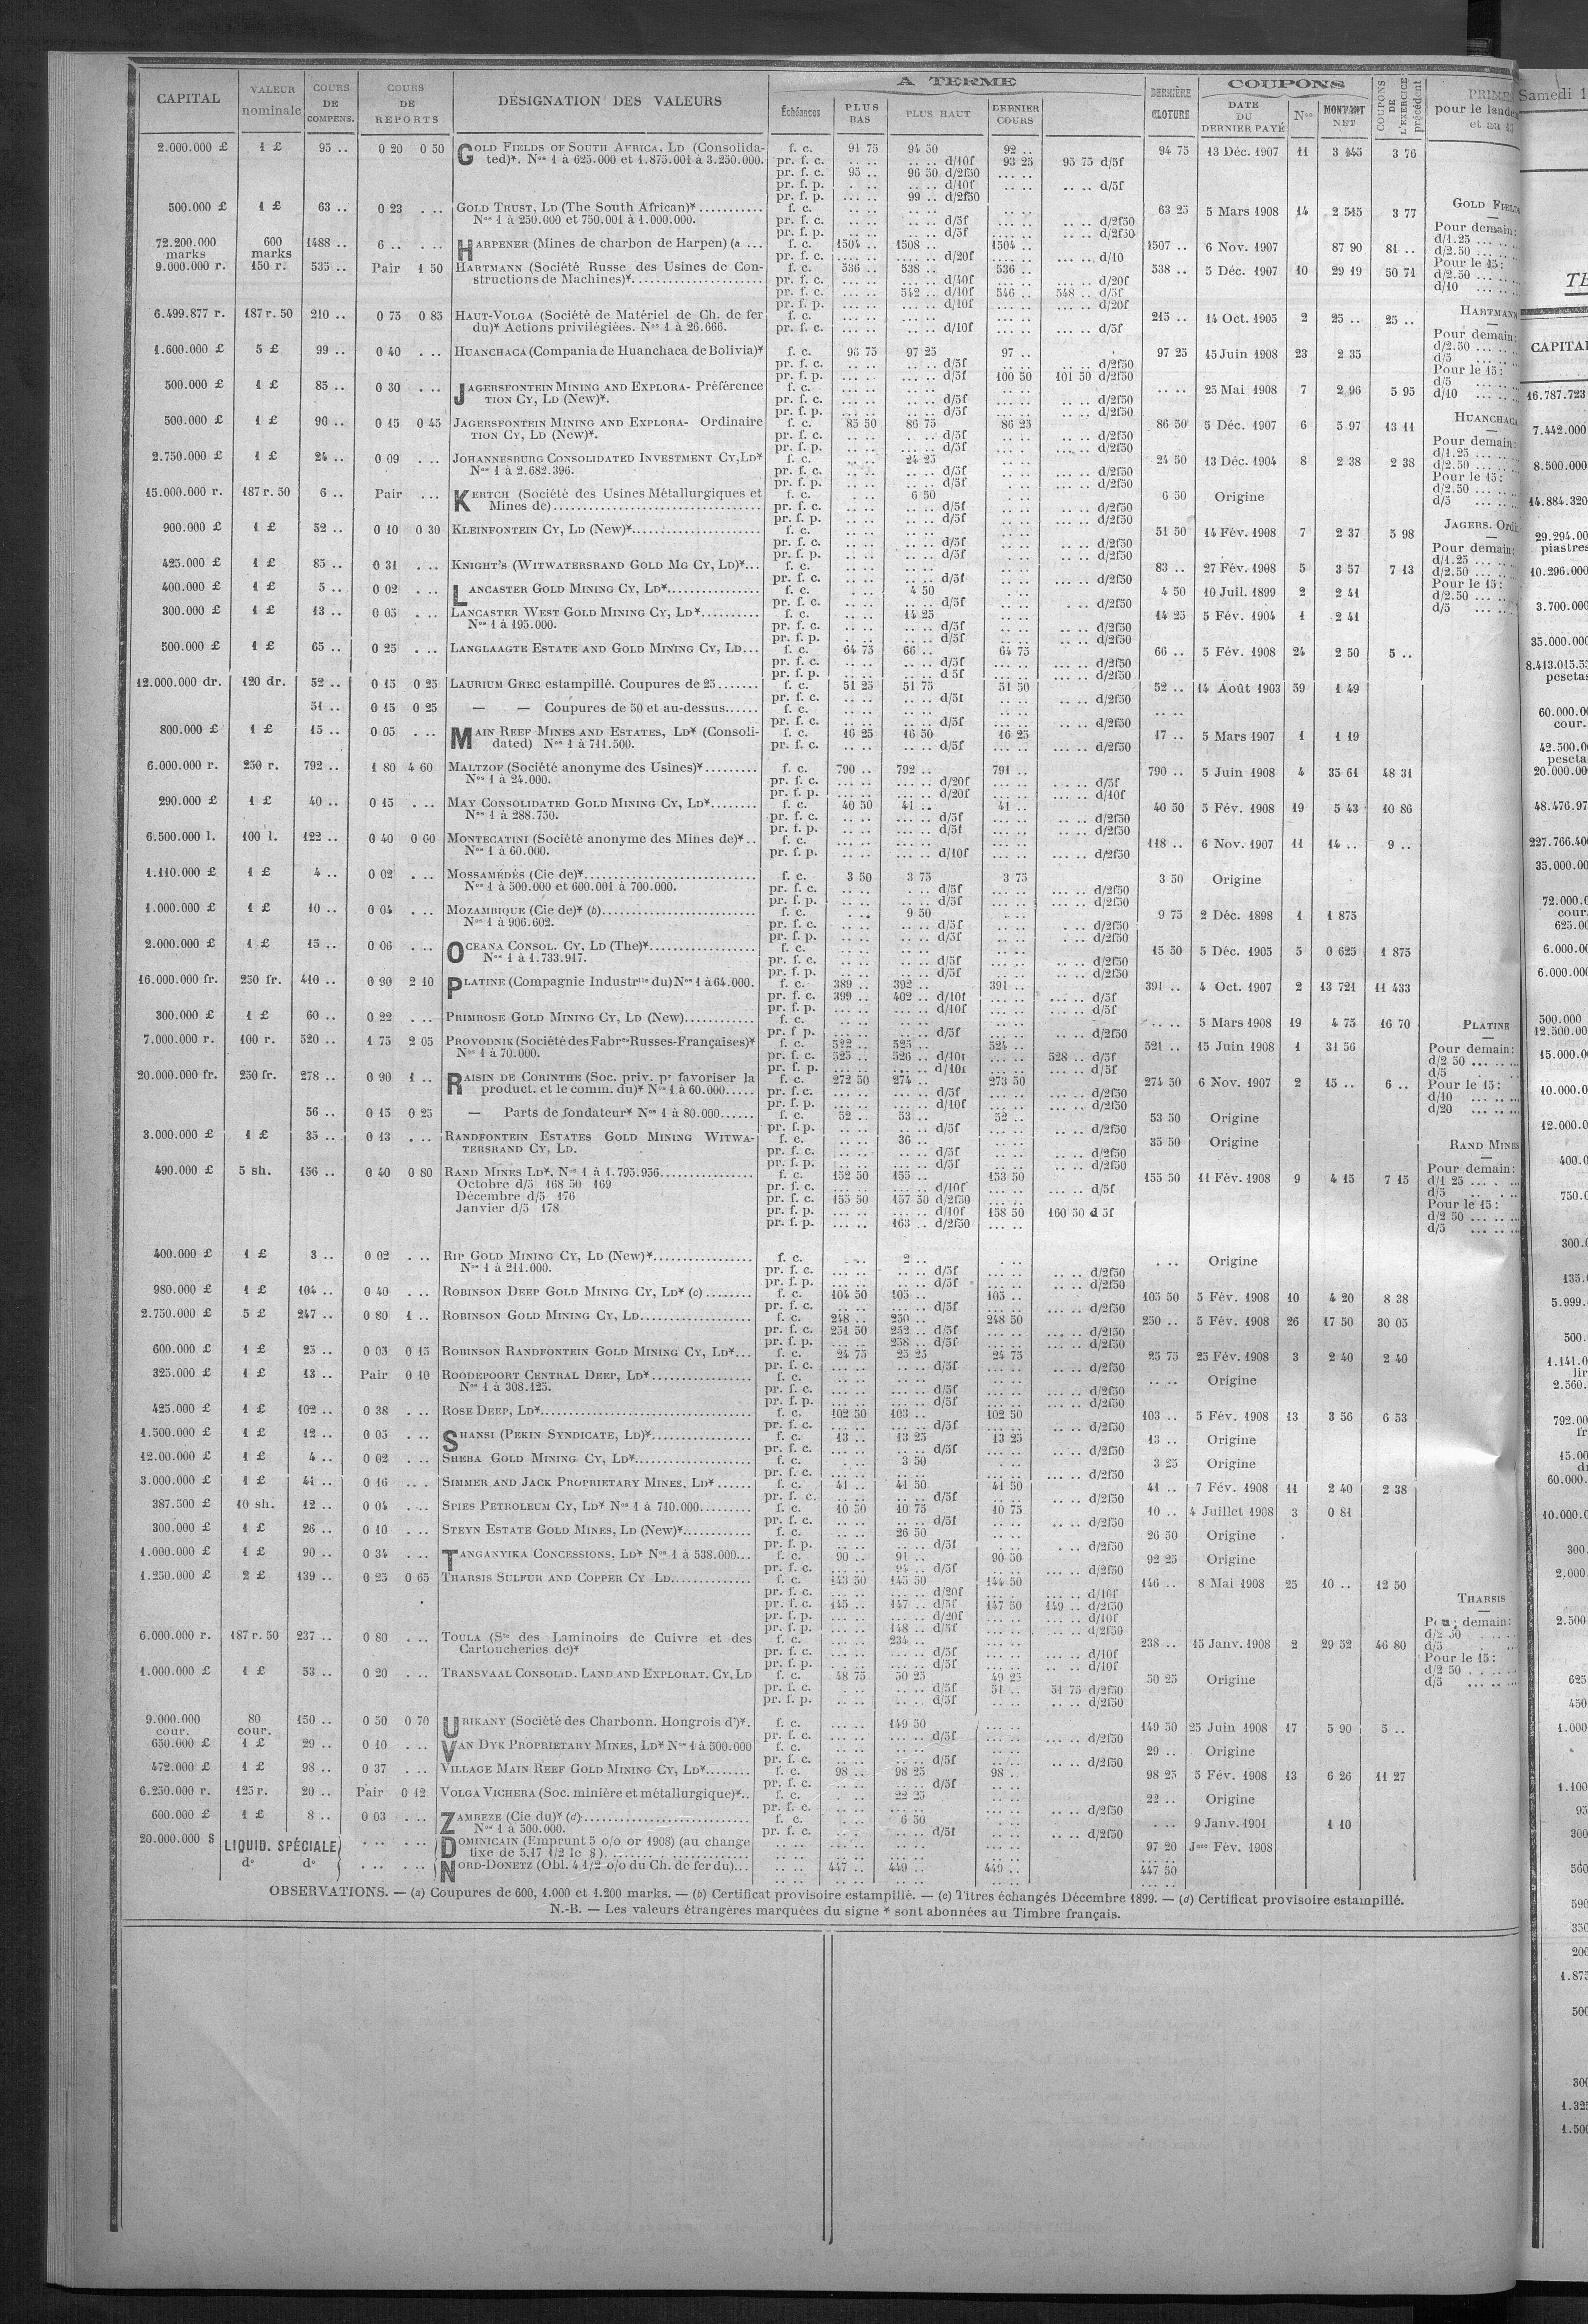 CAPITAL VALEUR nominale COURS DE COMPENS. COURS DE REPORTS DÉSIGNATION DES VALEURS A TERME Échéances PLUS BAS PLUS HAUT DERNIER COURS DERNIÈRE CLOTURE COUPONS DATE DU DERNIER PAYÉ Nos MONTANT NET COUPONS DE L'EXERCICE précédent
2.000.000 £ 1 £ 95 .. 0 20 0 50 GOLD FIELDS OF SOUTH AFRICA, LD (Consolida- f. c. 91 75 94 50 92 .. 94 75 13 Déc. 1907 11 3 445 3 76
ted)*. Nos 1 à 625.000 et 1.875.001 à 3.250.000. pr. f. c. .. .. .. .. d/10f 93 25 95 75 d/5f
pr. f. c. 95 .. 96 50 d/2f50 .. ..
pr. f. p. .. .. d/10f .. .. .. .. d/5f
pr. f. p. .. .. 99 .. d/2f50
500.000 £ 1 £ 63 .. 0 23 . .. GOLD TRUST, LD (The South African)* f. c. 63 25 5 Mars 1908 14 2 515 3 77
Nos 1 à 250.000 et 750.001 à 1.000.000. pr. f. c. .. .. .. .. d/5f .. .. d/2f50
pr. f. p. .. .. d/5f .. .. d/2f50
72.200.000 marks 600 marks 1488 .. 6 .. . .. HARPENER (Mines de charbon de Harpen) (a ... f. c. 1504 .. 1508 .. 1504 .. 1507 .. 6 Nov. 1907 87 90 81 ..
pr. f. c. .. .. d/20f .. .. d/10
9.000.000 r. 150 r. 535 .. Pair 1 50 HARTMANN (Société Russe des Usines de Con- f. c. 536 .. 538 .. 536 .. 538 .. 5 Déc. 1907 10 29 19 50 71
structions de Machines)* pr. f. c. .. .. d/40f .. .. d/20f
pr. f. c. .. .. 542 .. d/10f 546 .. 548 .. d/5f
pr. f. p. .. .. d/10f .. .. d/20f
6.499.877 r. 187 r. 50 210 .. 0 75 0 85 HAUT-VOLGA (Société de Matériel de Ch. de fer f. c. 215 .. 14 Oct. 1905 2 25 .. 25 ..
du)* Actions privilégiées. Nos 1 à 26.666. pr. f. c. .. .. d/10f .. .. d/5f
1.600.000 £ 5 £ 99 .. 0 40 . .. HUANCHACA (Compania de Huanchaca de Bolivia)* f. c. 96 75 97 25 97 .. 97 25 15 Juin 1908 23 2 35
pr. f. c. .. .. d/5f .. .. d/2f50
pr. f. p. .. .. d/5f 100 50 101 50 d/2f50
500.000 £ 1 £ 85 .. 0 30 . .. JAGERSFONTEIN MINING AND EXPLORA- Préférence f. c. .. .. 25 Mai 1908 7 2 96 5 95
TION CY, LD (New)*. pr. f. c. .. .. d/5f .. .. d/2f50
pr. f. p. .. .. d/5f .. .. d/2f50
500.000 £ 1 £ 90 .. 0 15 0 45 JAGERSFONTEIN MINING AND EXPLORA- Ordinaire f. c. 85 50 86 75 86 25 86 50 5 Déc. 1907 6 5 97 13 11
TION CY, LD (New)*. pr. f. c. .. .. d/5f .. .. d/2f50
pr. f. p. .. .. d/5f .. .. d/2f50
2.750.000 £ 1 £ 24 .. 0 09 . .. JOHANNESBURG CONSOLIDATED INVESTMENT CY, LD* f. c. .. .. 24 25 24 50 13 Déc. 1904 8 2 38 2 38
Nos 1 à 2.682.396. pr. f. c. .. .. d/5f .. .. d/2f50
pr. f. p. .. .. d/5f .. .. d/2f50
15.000.000 r. 187 r. 50 6 .. Pair . .. KERTCH (Société des Usines Métallurgiques et f. c. .. .. 6 50 6 50 Origine
Mines de) pr. f. c. .. .. d/5f .. .. d/2f50
pr. f. p. .. .. d/5f .. .. d/2f50
900.000 £ 1 £ 52 .. 0 10 0 30 KLEINFONTEIN CY, LD (New)* f. c. 51 50 14 Fév. 1908 7 2 37 5 98
pr. f. c. .. .. d/5f .. .. d/2f50
pr. f. p. .. .. d/5f .. .. d/2f50
425.000 £ 1 £ 85 .. 0 31 . .. KNIGHT'S (WITWATERSRAND GOLD MG CY, LD)* f. c. 83 .. 27 Fév. 1908 5 3 57 7 13
pr. f. c. .. .. d/5f .. .. d/2f50
400.000 £ 1 £ 5 .. 0 02 . .. LANCASTER GOLD MINING CY, LD* f. c. 4 50 4 50 10 Juil. 1899 2 2 41
pr. f. c. .. .. d/5f .. .. d/2f50
300.000 £ 1 £ 13 .. 0 05 . .. LANCASTER WEST GOLD MINING CY, LD* f. c. 14 25 14 25 5 Fév. 1904 1 2 41
Nos 1 à 195.000. pr. f. c. .. .. d/5f .. .. d/2f50
pr. f. p. .. .. d/5f .. .. d/2f50
500.000 £ 1 £ 65 .. 0 25 . .. LANGLAAGTE ESTATE AND GOLD MINING CY, LD... f. c. 64 75 66 .. 64 75 66 .. 5 Fév. 1908 24 2 50 5 ..
pr. f. c. .. .. d/5f .. .. d/2f50
pr. f. p. .. .. d 5f .. .. d/2f50
12.000.000 dr. 120 dr. 52 .. 0 15 0 25 LAURIUM GREC estampillé. Coupures de 25 f. c. 51 25 51 75 51 50 52 .. 14 Août 1903 59 1 49
pr. f. c. .. .. d/5f .. .. d/2f50
51 .. 0 15 0 25 — — Coupures de 50 et au-dessus f. c. .. ..
pr. f. c. .. .. d/5f .. .. d/2f50
800.000 £ 1 £ 15 .. 0 05 . .. MAIN REEF MINES AND ESTATES, LD* (Consoli- f. c. 16 25 16 50 16 25 17 .. 5 Mars 1907 1 1 19
dated) Nos 1 à 711.500. pr. f. c. .. .. d/5f .. .. d/2f50
6.000.000 r. 250 r. 792 .. 1 80 4 60 MALTZOF (Société anonyme des Usines)* f. c. 790 .. 792 .. 791 .. 790 .. 5 Juin 1908 4 35 61 48 31
Nos 1 à 24.000. pr. f. c. .. .. d/20f .. .. d/5f
pr. f. p. .. .. d/20f .. .. d/10f
290.000 £ 1 £ 40 .. 0 15 . .. MAY CONSOLIDATED GOLD MINING CY, LD* f. c. 40 50 41 .. 41 .. 40 50 5 Fév. 1908 19 5 43 10 86
Nos 1 à 288.750. pr. f. c. .. .. d/5f .. .. d/2f50
pr. f. p. .. .. d/5f .. .. d/2f50
6.500.000 l. 100 l. 122 .. 0 40 0 60 MONTECATINI (Société anonyme des Mines de)* f. c. 118 .. 6 Nov. 1907 11 14 .. 9 ..
Nos 1 à 60.000. pr. f. p. .. .. d/10f .. .. d/2f50
1.110.000 £ 1 £ 4 .. 0 02 . .. MOSSAMÉDÈS (Cie de)* f. c. 3 50 3 75 3 75 3 50 Origine
Nos 1 à 500.000 et 600.001 à 700.000. pr. f. c. .. .. d/5f .. .. d/2f50
pr. f. p. .. .. d/5f .. .. d/2f50
1.000.000 £ 1 £ 10 .. 0 04 . .. MOZAMBIQUE (Cie de)* (b) f. c. 9 50 9 75 2 Déc. 1898 1 1 875
Nos 1 à 906.602. pr. f. c. .. .. d/5f .. .. d/2f50
pr. f. p. .. .. d/5f .. .. d/2f50
2.000.000 £ 1 £ 15 .. 0 06 . .. OCEANA CONSOL. CY, LD (The)* f. c. 15 50 5 Déc. 1905 5 0 625 1 875
Nos 1 à 1.733.917. pr. f. c. .. .. d/5f .. .. d/2f50
pr. f. p. .. .. d/5f .. .. d/2f50
16.000.000 fr. 250 fr. 410 .. 0 90 2 10 PLATINE (Compagnie Industrlle du) Nos 1 à 64.000. f. c. 389 .. 392 .. 391 .. 391 .. 4 Oct. 1907 2 13 721 11 433
pr. f. c. 399 .. 402 .. d/10f .. .. d/5f
pr. f. p. .. .. d/10f .. .. d/5f
300.000 £ 1 £ 60 .. 0 22 . .. PRIMROSE GOLD MINING CY, LD (New) f. c. .. .. 5 Mars 1908 19 4 75 16 70
pr. f p. .. .. d/5f .. .. d/2f50
7.000.000 r. 100 r. 520 .. 1 75 2 05 PROVODNIK (Société des Fabres Russes-Françaises)* f. c. 522 .. 525 .. 524 .. 521 .. 15 Juin 1908 1 31 56
Nos 1 à 70.000. pr. f. c. 525 .. 526 .. d/10f .. .. 528 .. d/5f
pr. f. p. .. .. d/10f .. .. d/5f
20.000.000 fr. 250 fr. 278 .. 0 90 1 .. RAISIN DE CORINTHE (Soc. priv. pr favoriser la f. c. 272 50 274 .. 273 50 274 50 6 Nov. 1907 2 15 .. 6 ..
product. et le comm. du)* Nos 1 à 60.000 pr. f. c. .. .. d/5f .. .. d/2f50
pr. f. p. .. .. d/10f .. .. d/2f50
56 .. 0 15 0 25 — Parts de fondateur* Nos 1 à 80.000 f. c. 52 .. 53 .. 52 .. 53 50 Origine
pr. f. p. .. .. d/5f .. .. d/2f50
3.000.000 £ 1 £ 35 .. 0 13 . .. RANDFONTEIN ESTATES GOLD MINING WITWA- f. c. 36 .. 35 50 Origine
TERSRAND CY, LD. pr. f. c. .. .. d/5f .. .. d/2f50
pr. f. p. .. .. d/5f .. .. d/2f50
490.000 £ 5 sh. 156 .. 0 40 0 80 RAND MINES LD*. Nos 1 à 1.795.956 f. c. 152 50 155 .. 153 50 155 50 11 Fév. 1908 9 4 15 7 15
Octobre d/5 168 50 169 pr. f. c. .. .. d/10f .. .. d/5f
Décembre d/5 176 pr. f. c. 155 50 157 50 d/2f50
Janvier d/5 178 pr. f. p. .. .. d/10f 158 50 160 50 d 5f
pr. f. p. .. .. 163 .. d/2f50
400.000 £ 1 £ 3 .. 0 02 . .. RIP GOLD MINING CY, LD (New)* f. c. 2 .. . .. Origine
Nos 1 à 211.000. pr. f. c. .. .. d/5f .. .. d/2f50
pr. f. p. .. .. d/5f .. .. d/2f50
980.000 £ 1 £ 104 .. 0 40 . .. ROBINSON DEEP GOLD MINING CY, LD* (c) f. c. 104 50 105 .. 105 .. 105 50 5 Fév. 1908 10 4 20 8 38
pr. f. c. .. .. d/5f .. .. d/2f50
2.750.000 £ 5 £ 247 .. 0 80 1 .. ROBINSON GOLD MINING CY, LD f. c. 248 .. 250 .. 248 50 250 .. 5 Fév. 1908 26 17 50 30 05
pr. f. c. 251 50 252 .. d/5f .. .. d/2f50
pr. f. p. .. .. 258 .. d/5f .. .. d/2f50
600.000 £ 1 £ 25 .. 0 03 0 15 ROBINSON RANDFONTEIN GOLD MINING CY, LD* f. c. 24 75 25 25 24 75 25 75 25 Fév. 1908 3 2 40 2 40
pr. f. c. .. .. d/5f .. .. d/2f50
325.000 £ 1 £ 13 .. Pair 0 10 ROODEPOORT CENTRAL DEEP, LD* f. c. .. .. Origine
Nos 1 à 308.125. pr. f. c. .. .. d/5f .. .. d/2f50
pr. f. p. .. .. d/5f .. .. d/2f50
425.000 £ 1 £ 102 .. 0 38 . .. ROSE DEEP, LD* f. c. 102 50 103 .. 102 50 103 .. 5 Fév. 1908 13 3 56 6 53
pr. f. c. .. .. d/5f .. .. d/2f50
1.500.000 £ 1 £ 12 .. 0 05 . .. SHANSI (PEKIN SYNDICATE, LD)* f. c. 13 .. 13 25 13 25 13 .. Origine
pr. f. c. .. .. d/5f .. .. d/2f50
12.00.000 £ 1 £ 4 .. 0 02 . .. SHEBA GOLD MINING CY, LD* f. c. 3 50 3 25 Origine
pr. f. c. .. .. d/2f50
3.000.000 £ 1 £ 41 .. 0 16 . .. SIMMER AND JACK PROPRIETARY MINES, LD* f. c. 41 .. 41 50 41 50 41 .. 7 Fév. 1908 11 2 40 2 38
pr. f. c. .. .. d/5f .. .. d/2f50
387.500 £ 10 sh. 12 .. 0 04 . .. SPIES PETROLEUM CY, LD* Nos 1 à 710.000 f. c. 10 50 10 75 10 75 10 .. 4 Juillet 1908 3 0 81
pr. f. c. .. .. d/5f .. .. d/2f50
300.000 £ 1 £ 26 .. 0 10 . .. STEYN ESTATE GOLD MINES, LD (New)* f. c. 26 50 26 50 Origine
pr. f. p. .. .. d/5f .. .. d/2f50
1.000.000 £ 1 £ 90 .. 0 34 . .. TANGANYIKA CONCESSIONS, LD* Nos 1 à 538.000... f. c. 90 .. 91 .. 90 50 92 25 Origine
pr. f. c. .. .. 94 .. d/5f .. .. d/2f50
1.250.000 £ 2 £ 139 .. 0 25 0 65 THARSIS SULFUR AND COPPER CY LD f. c. 143 50 145 50 144 50 146 .. 8 Mai 1908 25 10 .. 12 50
pr. f. c. .. .. d/20f .. .. d/10f
pr. f. c. 145 .. 147 .. d/5f 147 50 149 .. d/2f50
pr. f. p. .. .. d/20f .. .. d/10f
pr. f. p. .. .. 148 .. d/5f .. .. d/2f50
6.000.000 r. 187 r. 50 237 .. 0 80 . .. TOULA (Sté des Laminoirs de Cuivre et des f. c. 234 .. 238 .. 15 Janv. 1908 2 29 52 46 80
Cartoucheries de)* pr. f. c. .. .. d/5f .. .. d/10f
pr. f. p. .. .. d/5f .. .. d/10f
1.000.000 £ 1 £ 53 .. 0 20 . .. TRANSVAAL CONSOLID. LAND AND EXPLORAT. CY, LD f. c. 48 75 50 25 49 25 50 25 Origine
pr. f. c. .. .. d/5f 51 .. 51 75 d/2f50
pr. f. p. .. .. d/5f .. .. d/2f50
9.000.000 cour. 80 cour. 150 .. 0 50 0 70 URIKANY (Société des Charbonn. Hongrois d')*. f. c. 149 50 149 50 25 Juin 1908 17 5 90 5 ..
pr. f. c. .. .. d/5f .. .. d/2f50
650.000 £ 1 £ 29 .. 0 10 . .. VAN DYK PROPRIETARY MINES, LD* Nos 1 à 500.000 f. c. 29 .. Origine
pr. f. c. .. .. d/5f .. .. d/2f50
472.000 £ 1 £ 98 .. 0 37 . .. VILLAGE MAIN REEF GOLD MINING CY, LD* f. c. 98 .. 98 25 98 .. 98 25 5 Fév. 1908 13 6 26 11 27
pr. f. c. .. .. d/5f
6.250.000 r. 125 r. 20 .. Pair 0 12 VOLGA VICHERA (Soc. minière et métallurgique)* f. c. 22 25 22 .. Origine
pr. f. c. .. .. d/2f50
600.000 £ 1 £ 8 .. 0 03 . .. ZAMBEZE (Cie du)* (d) f. c. 6 50 . .. 9 Janv. 1901 1 10
Nos 1 à 500.000. pr. f. c. .. .. d/5f .. .. d/2f50
20.000.000 $ LIQUID. SPÉCIALE DOMINICAIN (Emprunt 5 o/o or 1908) (au change 97 20 Jnce Fév. 1908
fixe de 5,17 1/2 le $)
do do NORD-DONETZ (Obl. 4 1/2 o/o du Ch. de fer du)... 447 .. 449 .. 449 .. 447 50
OBSERVATIONS. — (a) Coupures de 600, 1.000 et 1.200 marks. — (b) Certificat provisoire estampillé. — (c) Titres échangés Décembre 1899. — (d) Certificat provisoire estampillé.
N.-B. — Les valeurs étrangères marquées du signe * sont abonnées au Timbre français.
pour le
et au 15
GOLD
Pour demain:
d/1.25
d/2.50
Pour le 15:
d/2.50
d/10
HARTMANN
Pour demain:
d/2.50
d/5
Pour le 15:
d/5
d/10
HUANCHACA
Pour demain:
d/1.25
d/2.50
Pour le 15:
d/2.50
d/5
JAGERS.
Pour demain:
d/1.25
d/2.50
Pour le 15:
d/2.50
d/5
PLATINE
Pour demain:
d/2 50
d/5
Pour le 15:
d/10
d/20
RAND MINES
Pour demain:
d/1 25
d/5
Pour le 15:
d/2 50
d/5
THARSIS
demain:
d/2 50
d/5
Pour le 15:
d/2 50
d/5
Samedi
16.787.723
7.442.000
8.500.000
14.884.320
piastres
10.296.000
3.700.000
35.000.000
pesetas
cour.
20.000.000
35.000.00
500.000